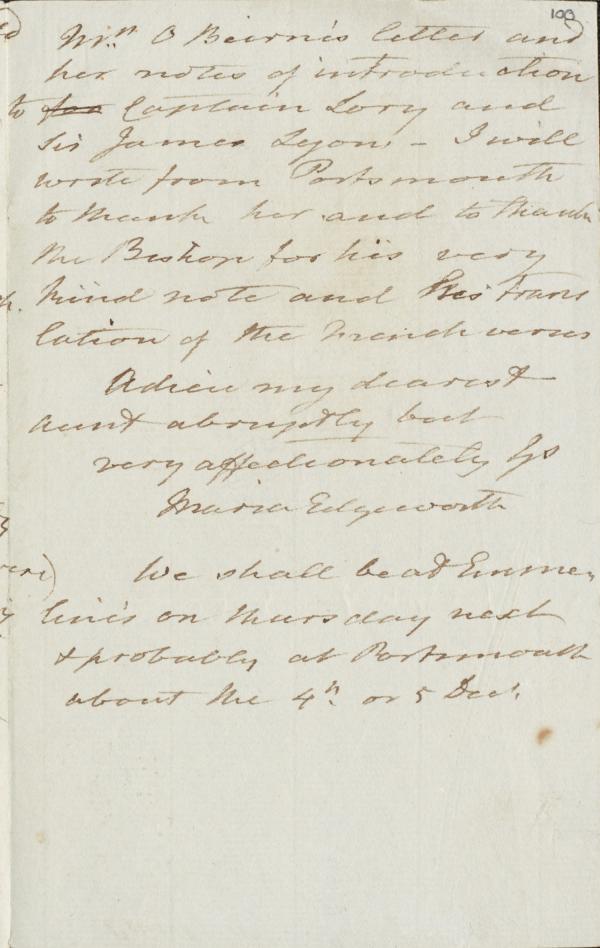 100
Mrs. O Beirne's letter and
her notes of introduction
to for Captain Lory and
Sir James Lyon. – I will
write from Portsmouth
to thank her and to thank
the Bishop for his very
kind note and his trans
lation of the French verses
Adieu my dearest
aunt abruptly but
very affectionately Yrs
Maria Edgeworth
We shall be at Emme,
line's on Thursday next
& probably at Portsmouth
about the 4th. or 5 Decr.